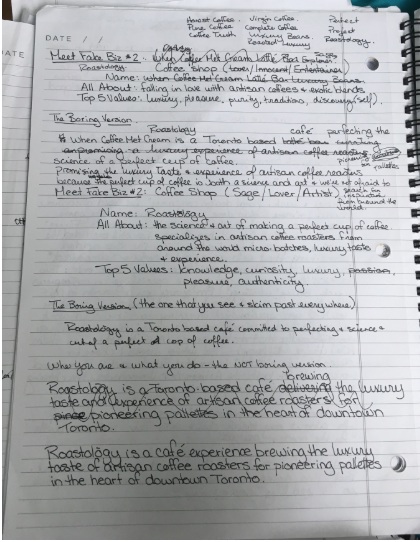 Honest Coffee. Virgin Coffee. Perfect
Pure Coffee Complete Coffee Project
Coffee Truth Luxury Beans. Roastology.
Roasted Luxury
DATE / /
Meet Fake Biz #2: When Coffee Met Cream Latte Bar
Roastology Coffee Shop (Lover/Innocent/Entertainer)
Name: When Coffee Met Cream Latte Bar Luxury Beans.
All About: falling in love with artisan coffees & exotic blends
Top 5 Values: luxury, pleasure, purity, tradition, discovery (self).
The Boring Version.
Roastology café perfecting the
When Coffee Met Cream is a Toronto based
a luxury experience of artisan coffee
science of a perfect cup of coffee.
Promising the luxury taste & experience of artisan coffee roasters
because the perfect cup of coffee is both a science and art & we're not afraid to
Meet Fake Biz #2: Coffee Shop (Sage/Lover/Artist)
from around the
world
Name: Roastology
All About: the science & art of making a perfect cup of coffee.
specializes in artisan coffee roasters from
around the world micro batches, luxury taste
& experience.
Top 5 Values: Knowledge, curiosity, luxury, passion,
pleasure, authenticity.
The Boring Version (the one that you see & skim past everywhere)
Roastology is a Toronto based café committed to perfecting & science &
art of a perfect cup of coffee.
Who you are & what you do - the NOT boring version.
brewing
Roastology is a Toronto-based café delivering the luxury
taste and experience of artisan coffee roasters for
pioneering pallettes in the heart of downtown
Toronto.
Roastology is a café experience brewing the luxury
taste of artisan coffee roasters for pioneering pallettes
in the heart of downtown Toronto.